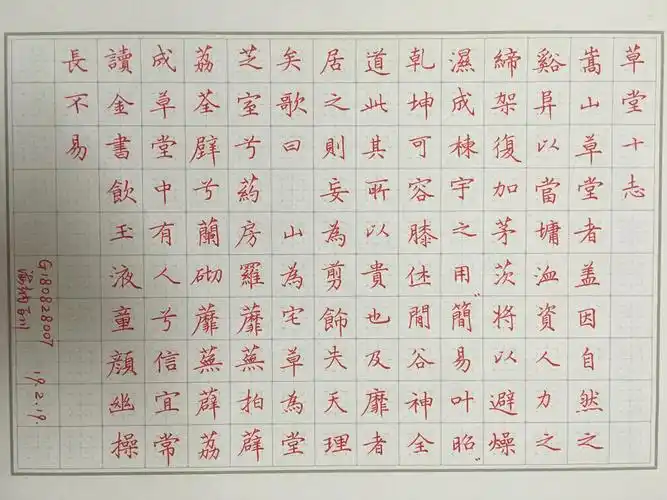 草堂十志
嵩山草堂者盖因自然之
谿阜以當墉洫資人力之
締架復加茅茨將以避燥
濕成棟宇之用"簡易叶昭"
乾坤可容膝休閒谷神全
道此其所以貴也及靡者
居之則妄為剪飾失天理
矣歌曰 山為宅草為堂
芝室兮葯房羅蘼蕪拍薜
荔荃壁兮蘭砌蘼蕪薜荔
成草堂中有人兮信宜常
讀金書飲玉液童顏幽操
長不易
G180828007
19.2.19.